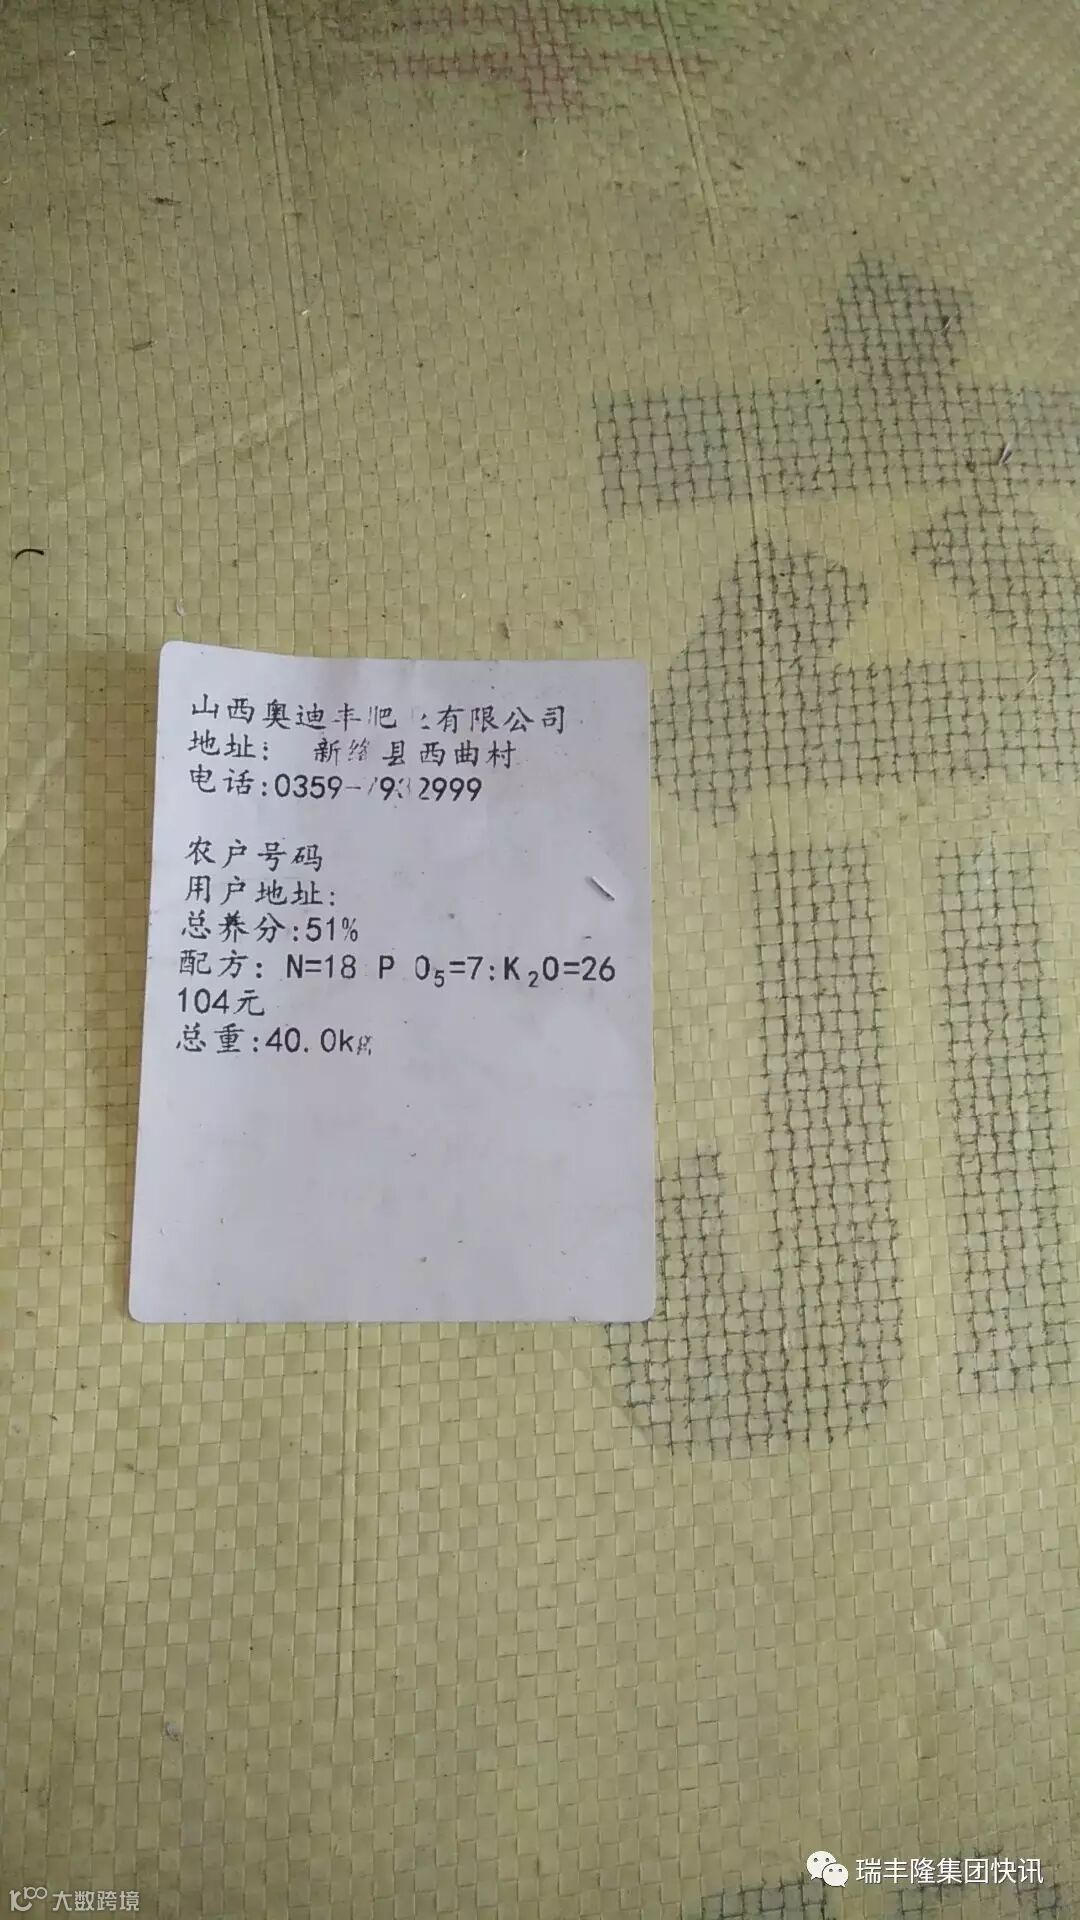 山西奥迪丰肥 有限公司
地址: 新绛县西曲村
电话:0359-7932999
农户号码
用户地址:
总养分:51%
配方: N=18 P O5=7:K2O=26
104元
总重:40.0k
瑞丰隆集团快讯
大数跨境